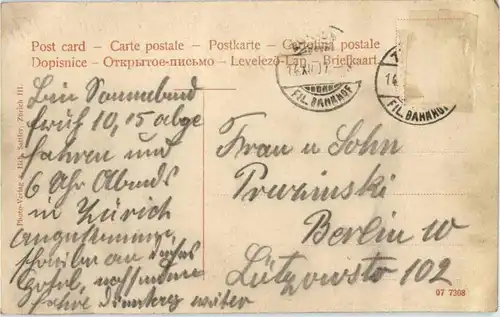 Post card – Carte postale – Postkarte – Cartolina postale
Dopisnice – Открытое-письмо – Levelező-Lap – Briefkaart
14.XI.07
FIL. BAHNHOF
14.
FIL. BAHNHOF
Photo-Verlag Zürich III.
Bin Sonnabend
früh 10,15 abge
fahren und
6 Uhr Abends
in Zürich
angekommen,
Hotel,
fahre Dienstag weiter
Frau u Sohn
Berlin W
Lützowstr 102
07 7308